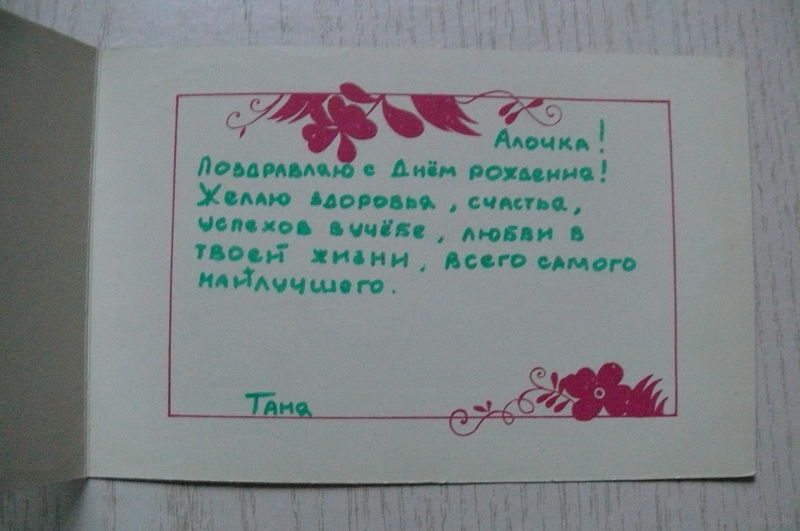 Алочка!
Поздравляю с Днём рождения!
Желаю здоровья, счастья,
успехов в учёбе, любви в
твоей жизни, всего самого
найлучшего.
Таня